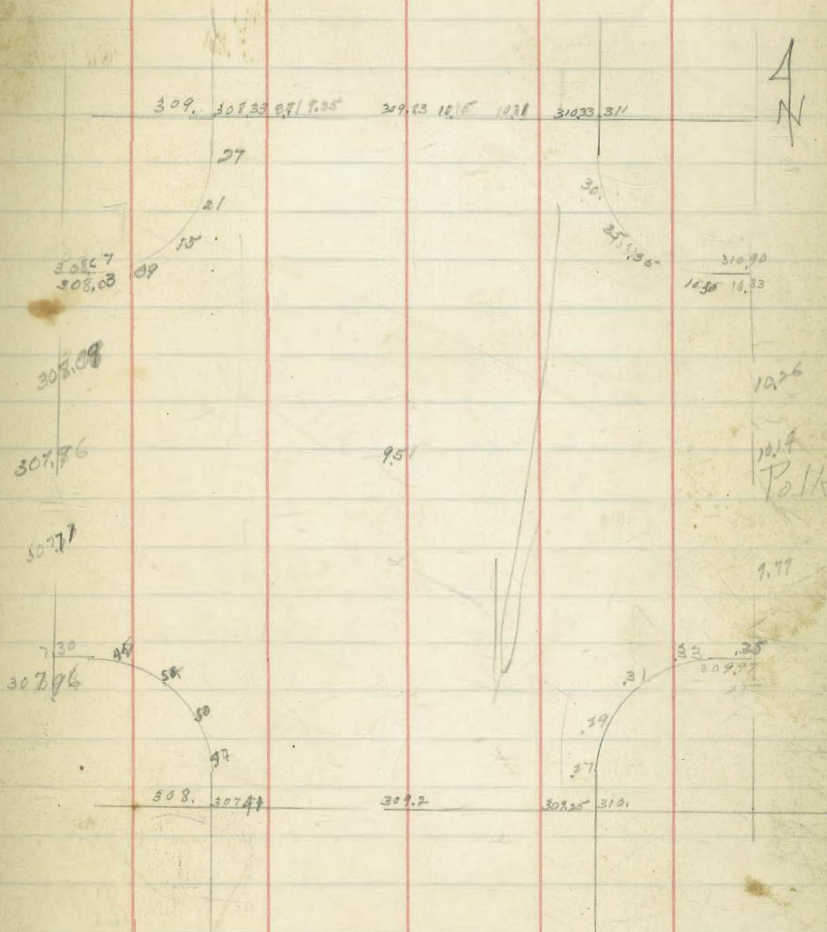 309. 308.33 9.71 9.35 309.83 10.15 10.31 310.33 311
N
27
21
15
09
30.
35
308.03
310.90
10.50 10.33
308.09
10.26
307.76
951
10.14
Polk
307.77
9.77
7.30
307.96
50
47
33 .35
309.97
.31
.29
.27
308. 307.41 309.2 309.25 310.